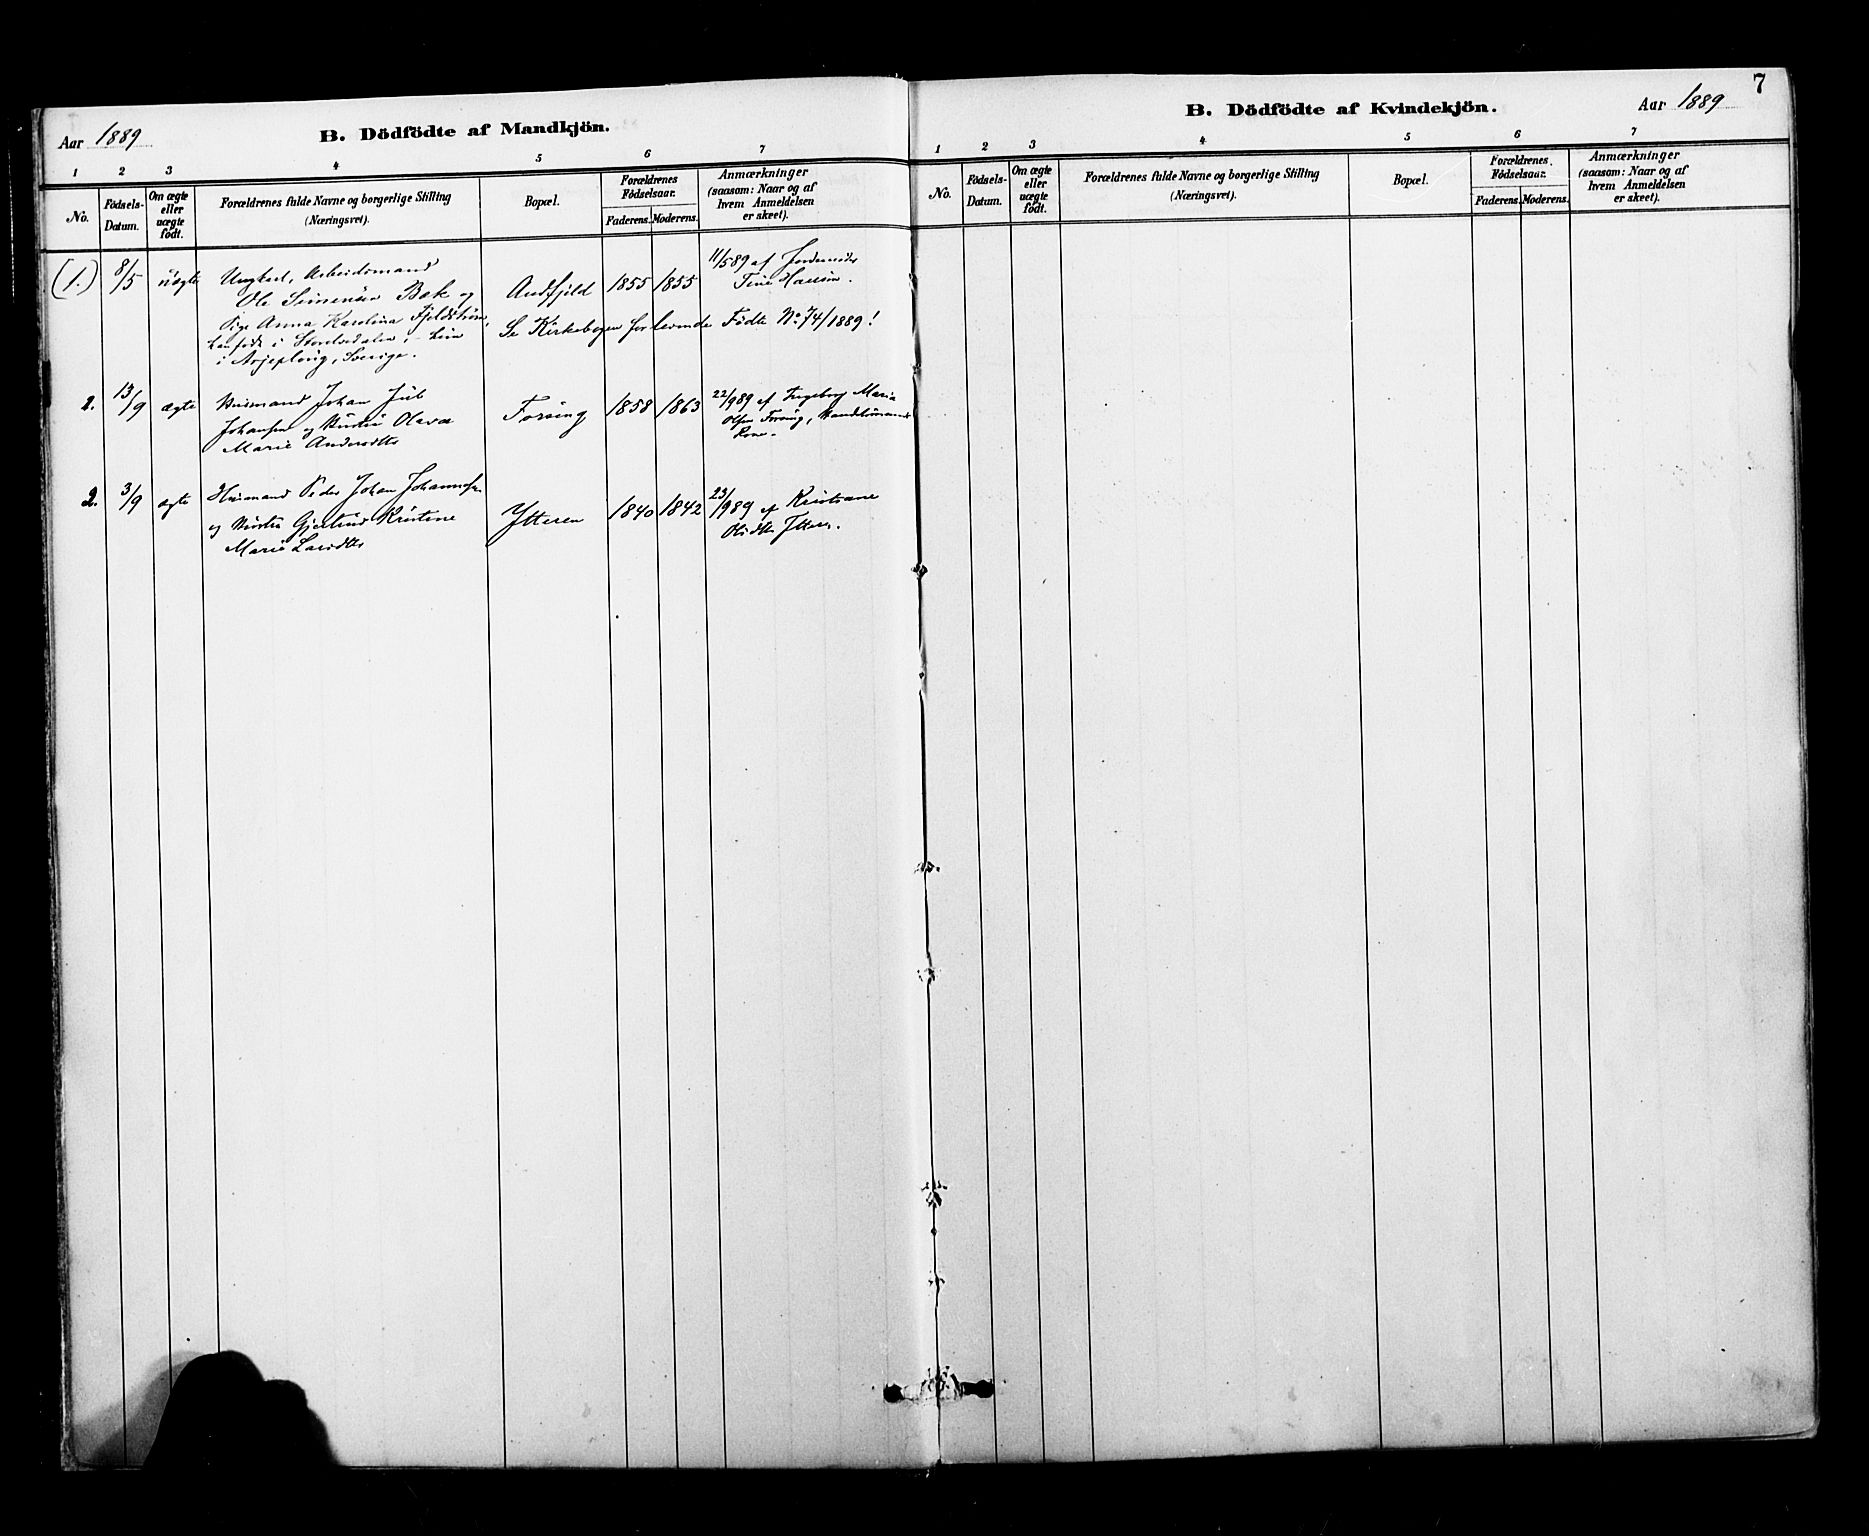 Aar 1889
B. Dödfödte af Mandkjön.
1 2 3 4 5 6 7
No.
Födsels-
Datum.
Om ægte
eller
uægte
födt.
Forældrenes fulde Navne og borgerlige Stilling
(Næringsvei).
Bopæl.
Forældrenes
Födselsaar.
Faderens. Moderens.
Anmærkninger
(saasom: Naar og af
hvem Anmeldelsen
er skeet).
(1.) 8/5 uægte
Ungkarl, Arbeidsmand
Ole Simensen Bæk og
Pige Anna Karolina Fjeldström,
han født i
i Arjeplong, Sverige.
Andfjeld 1855 1855
11/5 89 af Jordemoder
Tine Hansen.
Se Kirkebogen for levende Födte No. 74/1889!
1. 13/9 ægte
Husmand Johan Jul
Johansen og Hustru Olava
Marie Andersdtr
Forsing 1858 1863
22/9 89 af Ingeborg Maria
Olsen Forsing, Husmands
Kone.
2. 3/9 ægte
Husmand Peder Johan Johannesen
og Hustru Gjertrud Kristine
Marie Larsdtr
Ytteren 1840 1842
23/9 89 af Kristiane
Olsdtr Ytteren.
7
B. Dödfödte af Kvindekjön.
Aar 1889
1 2 3 4 5 6 7
No.
Födsels-
Datum.
Om ægte
eller
uægte
födt.
Forældrenes fulde Navne og borgerlige Stilling
(Næringsvei).
Bopæl.
Forældrenes
Födselsaar.
Faderens. Moderens.
Anmærkninger
(saasom: Naar og af
hvem Anmeldelsen
er skeet).